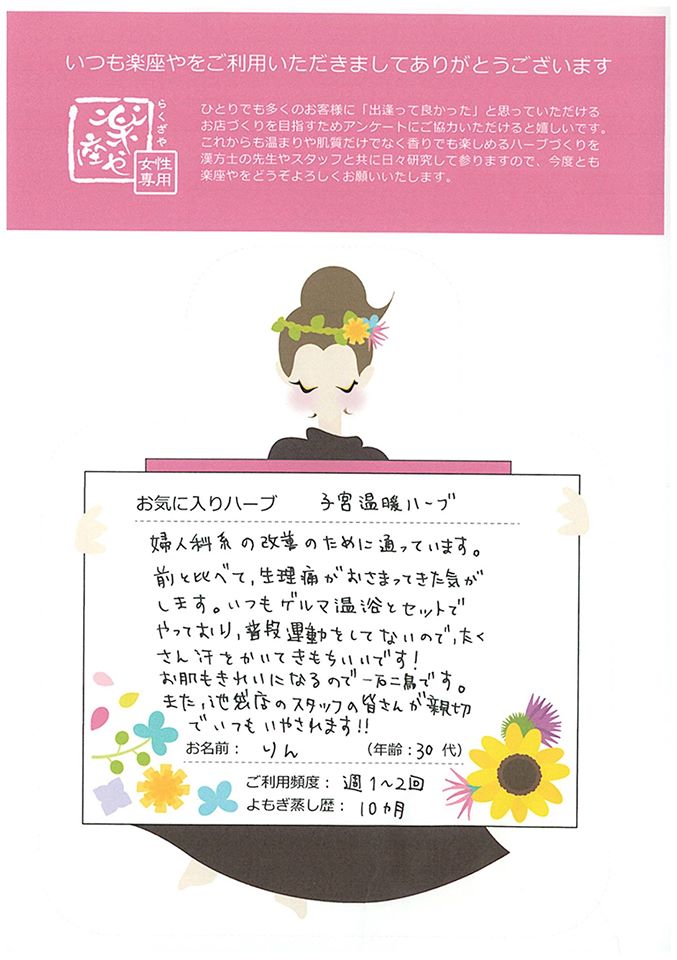 いつも楽座やをご利用いただきましてありがとうございます
らくざや
楽座や
女性専用
ひとりでも多くのお客様に「出逢って良かった」と思っていただける
お店づくりを目指すためアンケートにご協力いただけると嬉しいです。
これからも温まりや肌質だけでなく香りでも楽しめるハーブづくりを
漢方士の先生やスタッフと共に日々研究して参りますので、今度とも
楽座やをどうぞよろしくお願いいたします。
お気に入りハーブ 子宮温暖ハーブ
婦人科系の改善のために通っています。
前と比べて,生理痛がおさまってきた気が
します。いつもゲルマ温浴とセットで
やっており,普段運動をしてないので,たく
さん汗をかいてきもちいいです!
お肌もきれいになるので一石二鳥です。
また,池袋店のスタッフの皆さんが親切
でいつもいやされます!!
お名前： りん (年齢：30代)
ご利用頻度： 週1〜2回
よもぎ蒸し歴： 10ヵ月